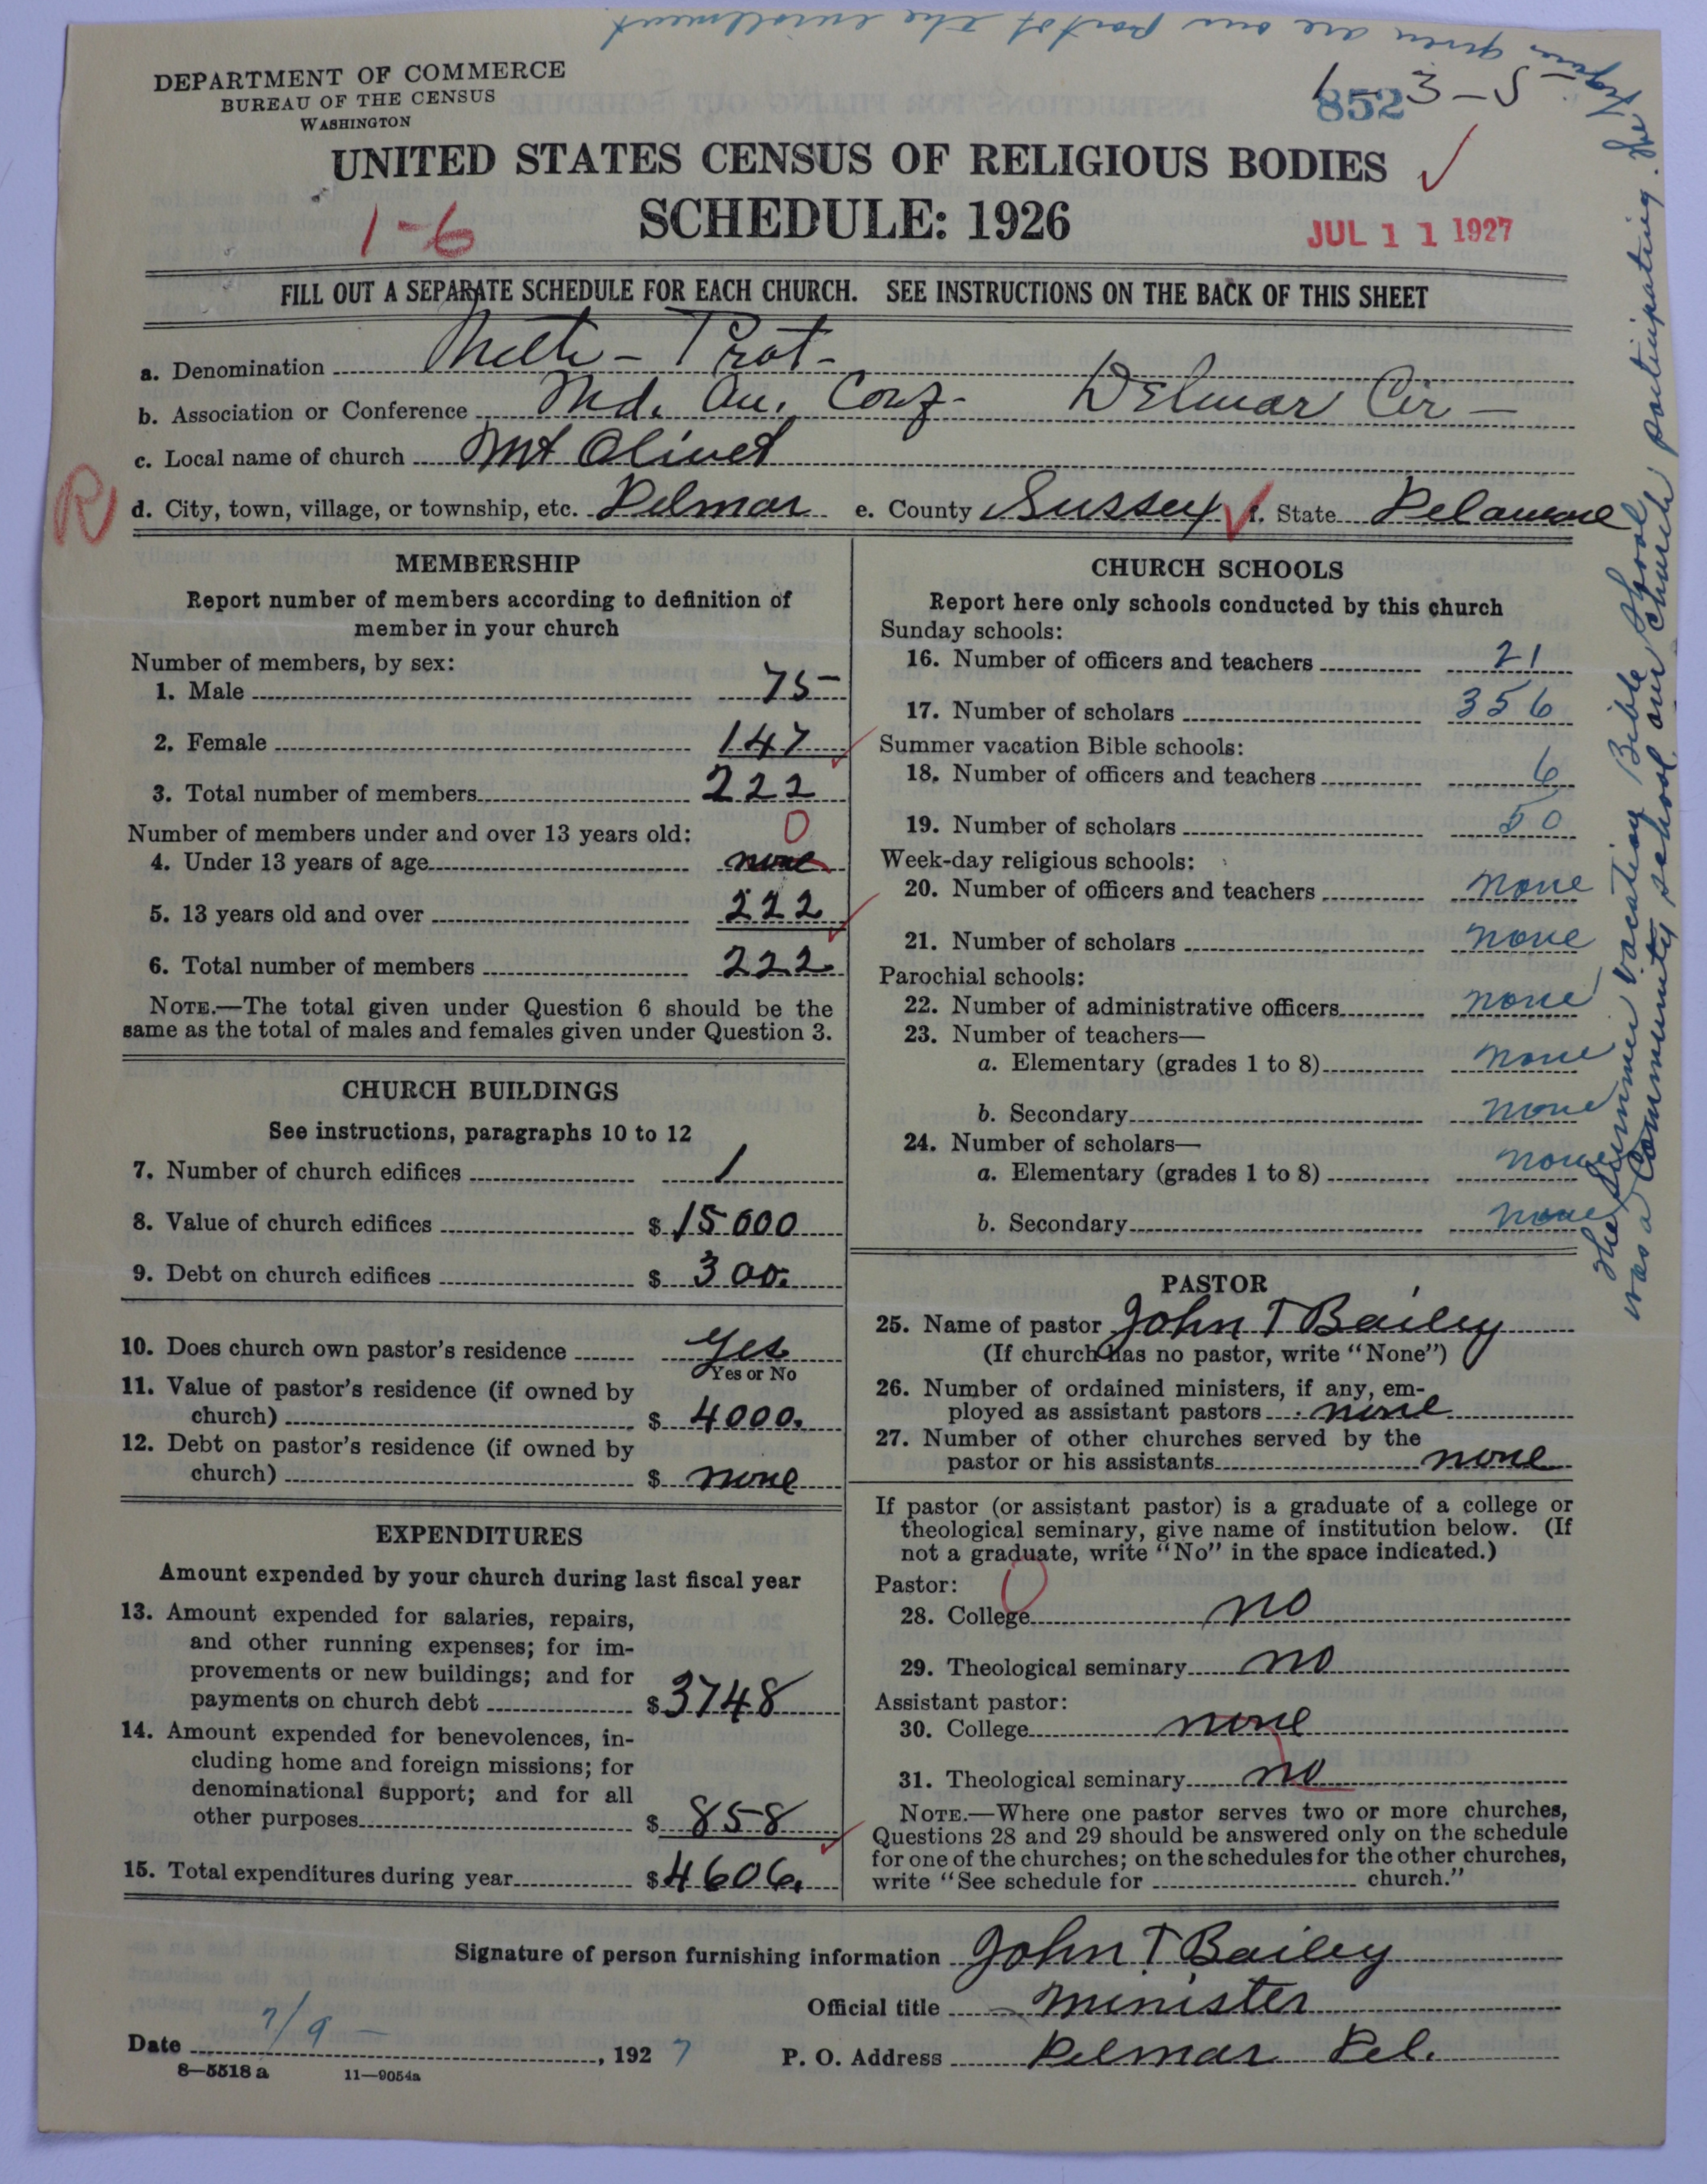 DEPARTMENT OF COMMERCE
BUREAU OF THE CENSUS
WASHINGTON
852
1-3-5
UNITED STATES CENSUS OF RELIGIOUS BODIES
1-6
SCHEDULE: 1926
JUL 11 1927
FILL OUT A SEPARATE SCHEDULE FOR EACH CHURCH. SEE INSTRUCTIONS ON THE BACK OF THIS SHEET
a. Denomination Meth-Prot-
b. Association or Conference Md. An. Conf- Delmar Cir-
c. Local name of church Mt Olivet
R
d. City, town, village, or township, etc. Delmar e. County Sussex f. State Delaware
MEMBERSHIP
Report number of members according to definition of
member in your church
Number of members, by sex:
1. Male 75
2. Female 147
3. Total number of members 222
Number of members under and over 13 years old: 0
4. Under 13 years of age none
5. 13 years old and over 222
6. Total number of members 222
NOTE.—The total given under Question 6 should be the
same as the total of males and females given under Question 3.
CHURCH BUILDINGS
See instructions, paragraphs 10 to 12
7. Number of church edifices 1
8. Value of church edifices $ 15000
9. Debt on church edifices $ 300.
10. Does church own pastor's residence yes
Yes or No
11. Value of pastor's residence (if owned by
church) $ 4000.
12. Debt on pastor's residence (if owned by
church) $ none
EXPENDITURES
Amount expended by your church during last fiscal year
13. Amount expended for salaries, repairs,
and other running expenses; for im-
provements or new buildings; and for
payments on church debt $ 3748
14. Amount expended for benevolences, in-
cluding home and foreign missions; for
denominational support; and for all
other purposes $ 858
15. Total expenditures during year $ 4606.
CHURCH SCHOOLS
Report here only schools conducted by this church
Sunday schools:
16. Number of officers and teachers 21
17. Number of scholars 356
Summer vacation Bible schools:
18. Number of officers and teachers 6
19. Number of scholars 50
Week-day religious schools:
20. Number of officers and teachers none
21. Number of scholars none
Parochial schools:
22. Number of administrative officers none
23. Number of teachers—
a. Elementary (grades 1 to 8) none
b. Secondary none
24. Number of scholars—
a. Elementary (grades 1 to 8) none
b. Secondary none
PASTOR
25. Name of pastor John T Bailey
(If church has no pastor, write "None")
26. Number of ordained ministers, if any, em-
ployed as assistant pastors none
27. Number of other churches served by the
pastor or his assistants none
If pastor (or assistant pastor) is a graduate of a college or
theological seminary, give name of institution below. (If
not a graduate, write "No" in the space indicated.)
Pastor: 0
28. College no
29. Theological seminary no
Assistant pastor:
30. College none
31. Theological seminary no
NOTE.—Where one pastor serves two or more churches,
Questions 28 and 29 should be answered only on the schedule
for one of the churches; on the schedules for the other churches,
write "See schedule for church."
The Summer vacation Bible School
was a community school, our church participating. The
figures given are our part of the enrollment
Signature of person furnishing information John T. Bailey
Official title Minister
Date 7/9- , 1927
P. O. Address Delmar Del.
8—5518a 11—9054a